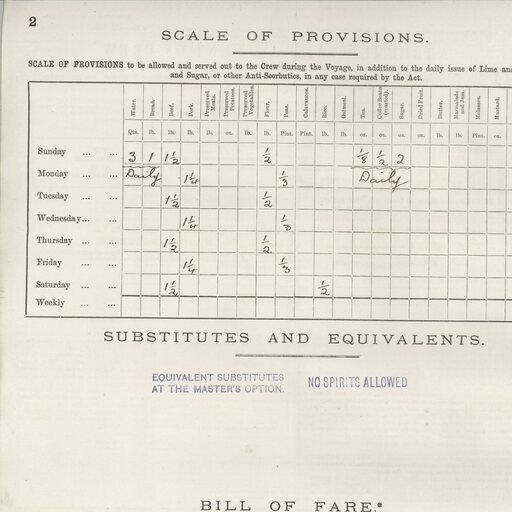 2
SCALE OF PROVISIONS.
SCALE OF PROVISIONS to be allowed and served out to the Crew during the Voyage, in addition to the daily issue of Lime and
and Sugar, or other Anti-Scorbutics, in any case required by the Act.
Water. Bread. Beef. Pork. Preserved Meats. Preserved Potatoes. Preserved Vegetables. Flour. Peas. Calavances. Rice. Oatmeal. Tea. Coffee Beans (roasted). Sugar. Dried Fruit. Butter. Marmalade and Jam. Molasses. Mustard.
Qts. lb. lb. lb. lb. oz. lb. lb. Pint. Pint. lb. lb. oz. oz. oz. lb. lb. lb. Pint. oz.
Sunday ... ... 3 1 1½ ½ ⅛ ½ 2
Monday ... ... Daily 1¼ ⅓ Daily
Tuesday ... ... 1½ ½
Wednesday... ... 1¼ ⅓
Thursday ... ... 1½ ½
Friday ... ... 1¼ ⅓
Saturday ... ... 1½ ½
Weekly ... ...
SUBSTITUTES AND EQUIVALENTS.
EQUIVALENT SUBSTITUTES
AT THE MASTER'S OPTION.
NO SPIRITS ALLOWED
BILL OF FARE.*